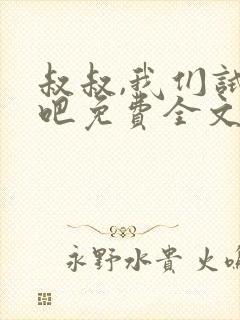 叔叔,我们试
吧免费全文
永野水贵 火